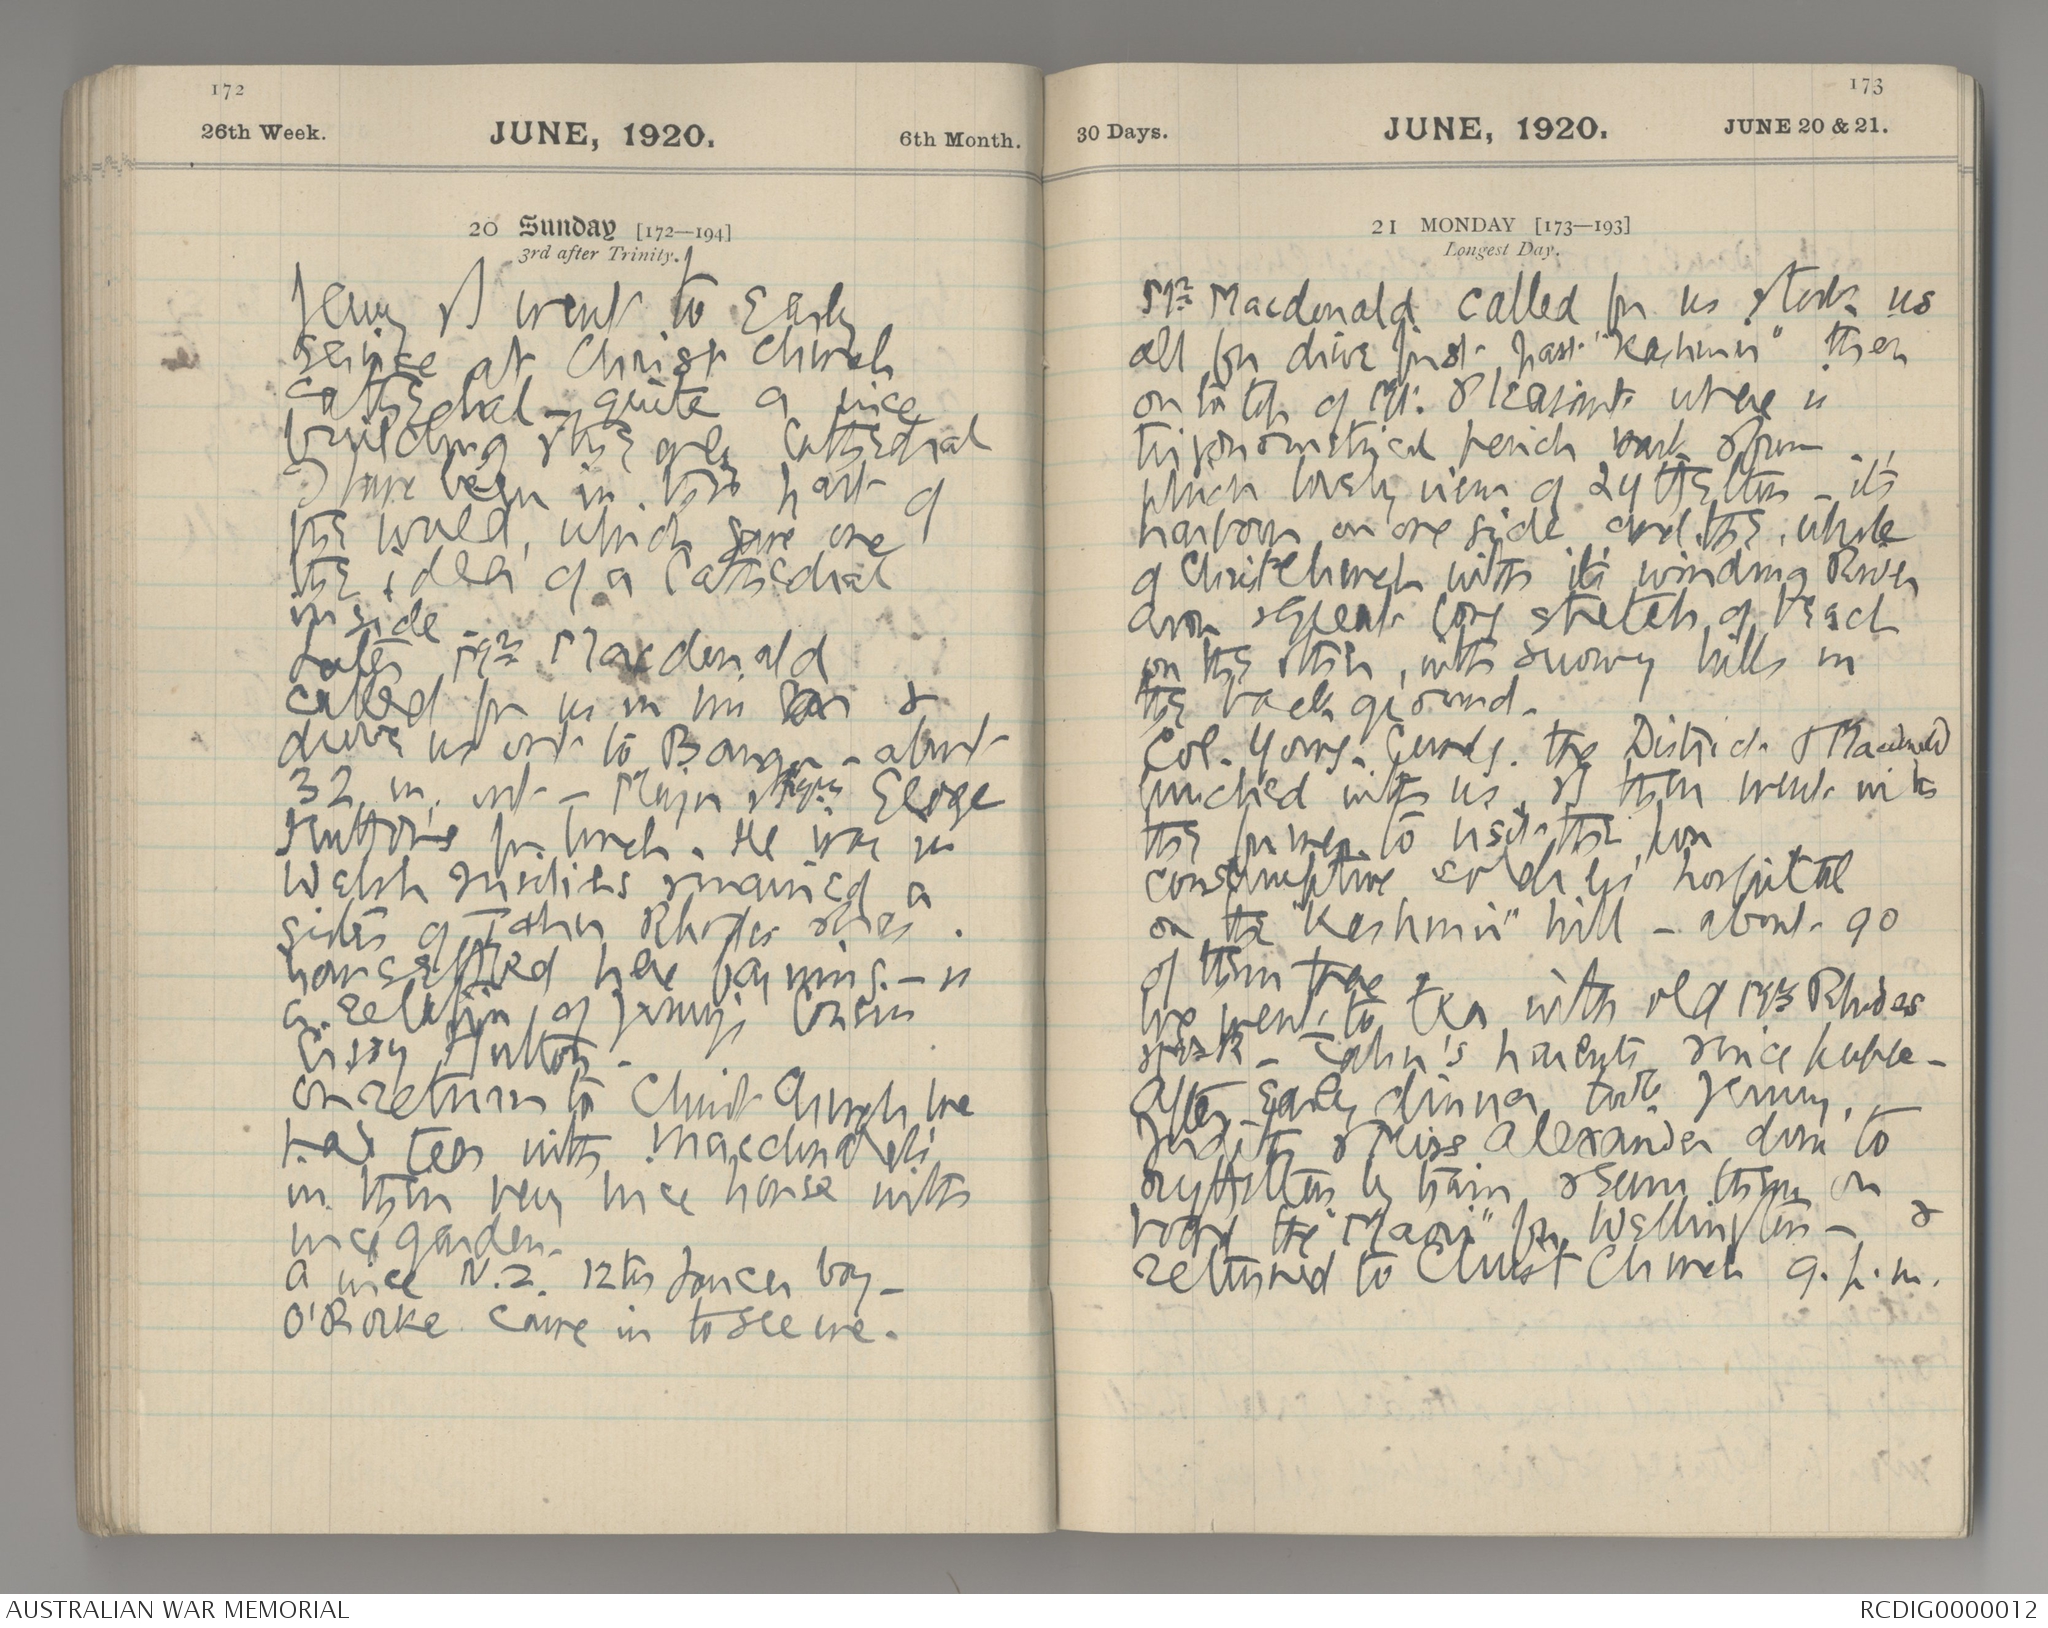 172
26th Week. JUNE, 1920. 6th Month.
20 Sunday [172—194]
3rd after Trinity.
Jenny & I went to Early
service at Christ Church
Cathedral – quite a nice
building & the only Cathedral
I have been in this part of
the world, which gave one
the idea of a Cathedral
inside
Later Mrs Macdonald
called for us in his car &
drove us out to – about
32 m. out – Major & Mrs
Hutton's for lunch. He was in
Welsh Fusiliers & married a
sister of John Rhodes & has
horses & farming – is
a relation of Jenny's Cousin
Cissy Hutton –
On return to Christ Church we
had tea with Macdonalds
in their very nice house with
nice garden.
A nice N.Z. 12th Lancer boy –
O'Rorke came in to see me.
173
30 Days. JUNE, 1920. JUNE 20 & 21.
21 MONDAY [173—193]
Longest Day.
Mrs Macdonald called for us & took us
all for drive first past "Kashmir" then
on to top of Mt. Pleasant where is
trigonometrical mark & from
which lovely view of Lyttelton – its
harbour on one side and the whole
of Christchurch with its winding River
Avon & great long stretch of beach
on the other, with snowy hills in
the back ground.
Col. Young. Comdg. the District & Macdonald
lunched with us, & I then went with
the former to visit the
consumptive soldiers' hospital
on the "Kashmir" hill – about 90
of them there
We went to tea with old Mrs Rhodes
– John's parents & nice people –
After Early dinner took Jenny,
Judith & Miss Alexander down to
Lyttelton by train & saw them on
board the "Maori" for Wellington – &
returned to Christ Church 9. p.m.
AUSTRALIAN WAR MEMORIAL
RCDIG0000012